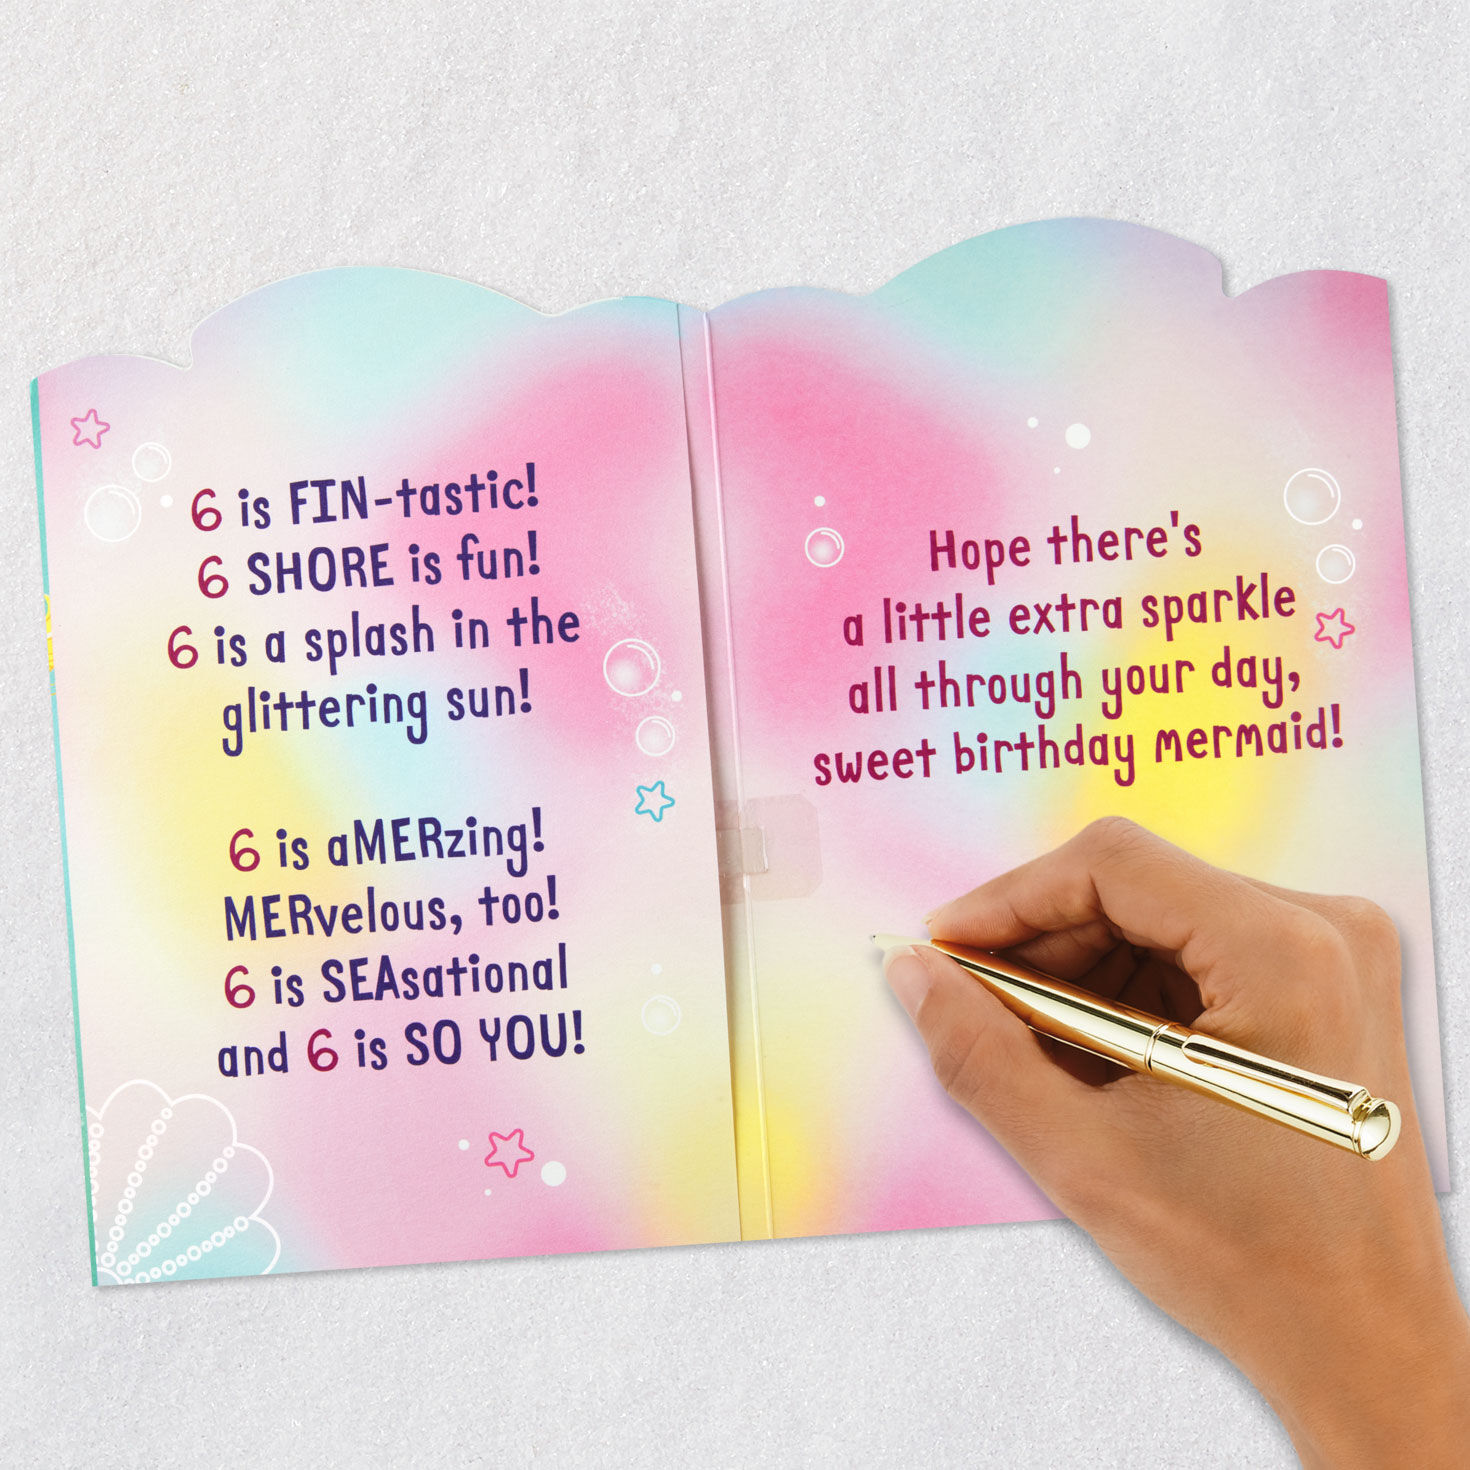 6 is FIN-tastic!
6 SHORE is fun!
6 is a splash in the
glittering sun!
6 is aMERzing!
MERvelous, too!
6 is SEAsational
and 6 is SO YOU!
Hope there's
a little extra sparkle
all through your day,
sweet birthday mermaid!